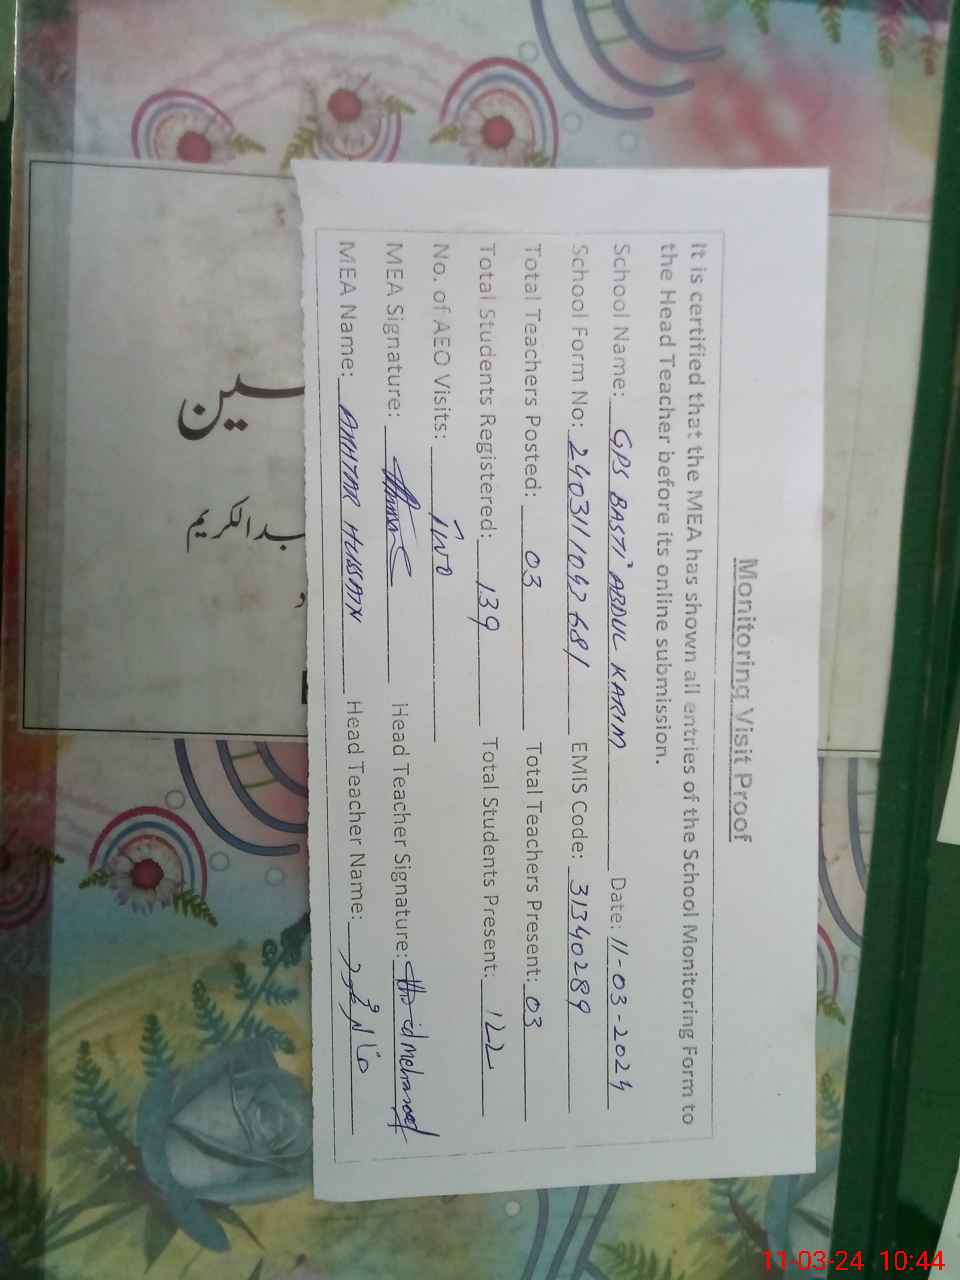 Monitoring Visit Proof
It is certified that the MEA has shown all entries of the School Monitoring Form to
the Head Teacher before its online submission.
School Name: GPS BASTI ABDUL KARIM Date: 11-03-2024
School Form No: EMIS Code: 31340289
Total Teachers Posted: 03 Total Teachers Present: 03
Total Students Registered: 139 Total Students Present: 122
No. of AEO Visits: Two
MEA Signature: Head Teacher Signature:
MEA Name: AKHTAR HUSSAIN Head Teacher Name:
سین
بدالکریم
11-03-24 10:44